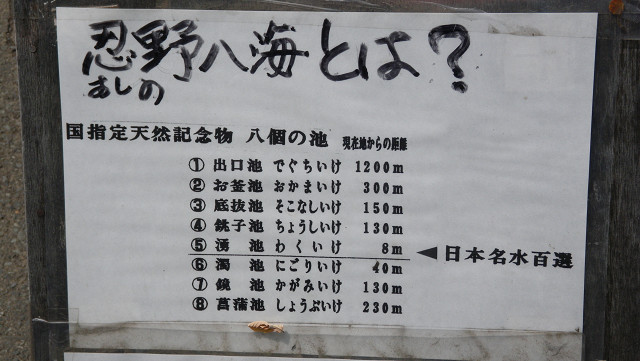 忍野八海とは?
おしの
国指定天然記念物 八個の池 現在地からの距離
① 出口池 でぐちいけ 1200m
② お釜池 おかまいけ 300m
③ 底抜池 そこなしいけ 150m
④ 銚子池 ちょうしいけ 130m
⑤ 湧池 わくいけ 8m
◀日本名水百選
⑥ 濁池 にごりいけ 40m
⑦ 鏡池 かがみいけ 130m
⑧ 菖蒲池 しょうぶいけ 230m